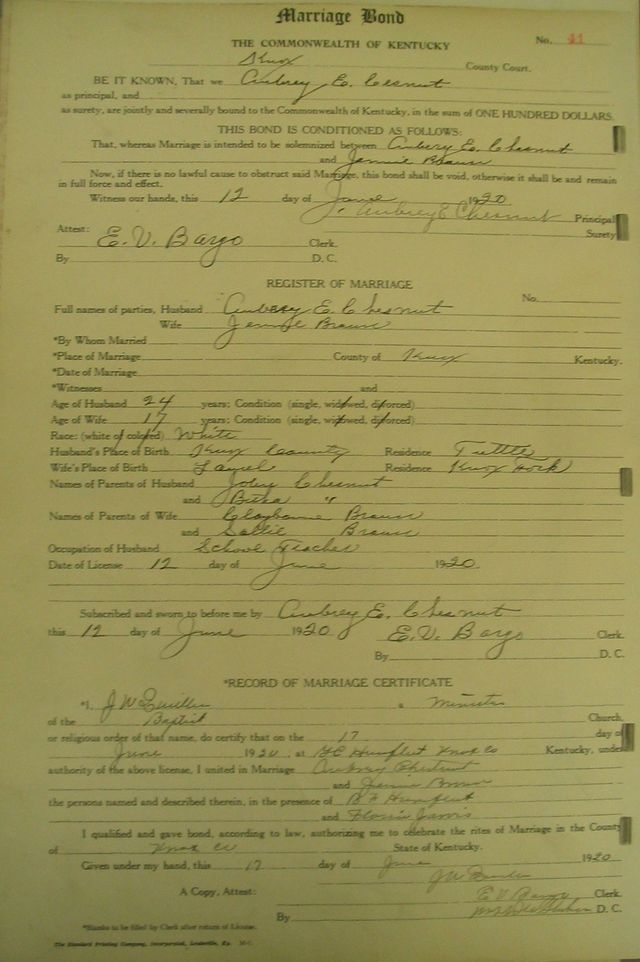 Marriage Bond
No. 41
THE COMMONWEALTH OF KENTUCKY
Knox County Court.
BE IT KNOWN, That we Aubrey E. Chesnut
as principal, and
as surety, are jointly and severally bound to the Commonwealth of Kentucky, in the sum of ONE HUNDRED DOLLARS.
THIS BOND IS CONDITIONED AS FOLLOWS:
That, whereas Marriage is intended to be solemnized between Aubery E. Chesnut
and Jennie Brown
Now, if there is no lawful cause to obstruct said Marriage, this bond shall be void, otherwise it shall be and remain
in full force and effect.
Witness our hands, this 12 day of June 1920
Aubrey E Chesnut Principal
Surety
Attest: E. V. Bargo Clerk.
By D. C.
REGISTER OF MARRIAGE
No.
Full names of parties, Husband Aubrey E. Chesnut
Wife Jennie Brown
*By Whom Married
*Place of Marriage County of Knox Kentucky.
*Date of Marriage
*Witnesses and
Age of Husband 24 years; Condition (single, widowed, divorced)
Age of Wife 17 years; Condition (single, widowed, divorced)
Race: (white of colored) White
Husband's Place of Birth Knox County Residence Tuttle
Wife's Place of Birth Laurel Residence Knox
Names of Parents of Husband Chesnut
and "
Names of Parents of Wife Claybourne Brown
and Sallie Brown
Occupation of Husband School Teacher
Date of License 12 day of June 1920
Subscribed and sworn to before me by Aubrey E. Chesnut
this 12 day of June 1920 E. V. Bargo Clerk.
By D. C.
*RECORD OF MARRIAGE CERTIFICATE
*I, J W a Minister
of the Baptist Church,
or religious order of that name, do certify that on the 17 day of
June 1920, at Knox Co Kentucky, under
authority of the above license, I united in Marriage Aubrey Chestnut
and Jennie Brown
the persons named and described therein, in the presence of
and Jarvis
I qualified and gave bond, according to law, authorizing me to celebrate the rites of Marriage in the County
of Knox Co State of Kentucky.
Given under my hand, this 17 day of June 1920
J W
A Copy, Attest: E V Bargo Clerk.
By D. C.
*Blanks to be filed by Clerk after return of License.
The Standard Printing Company, Incorporated, Louisville, Ky.